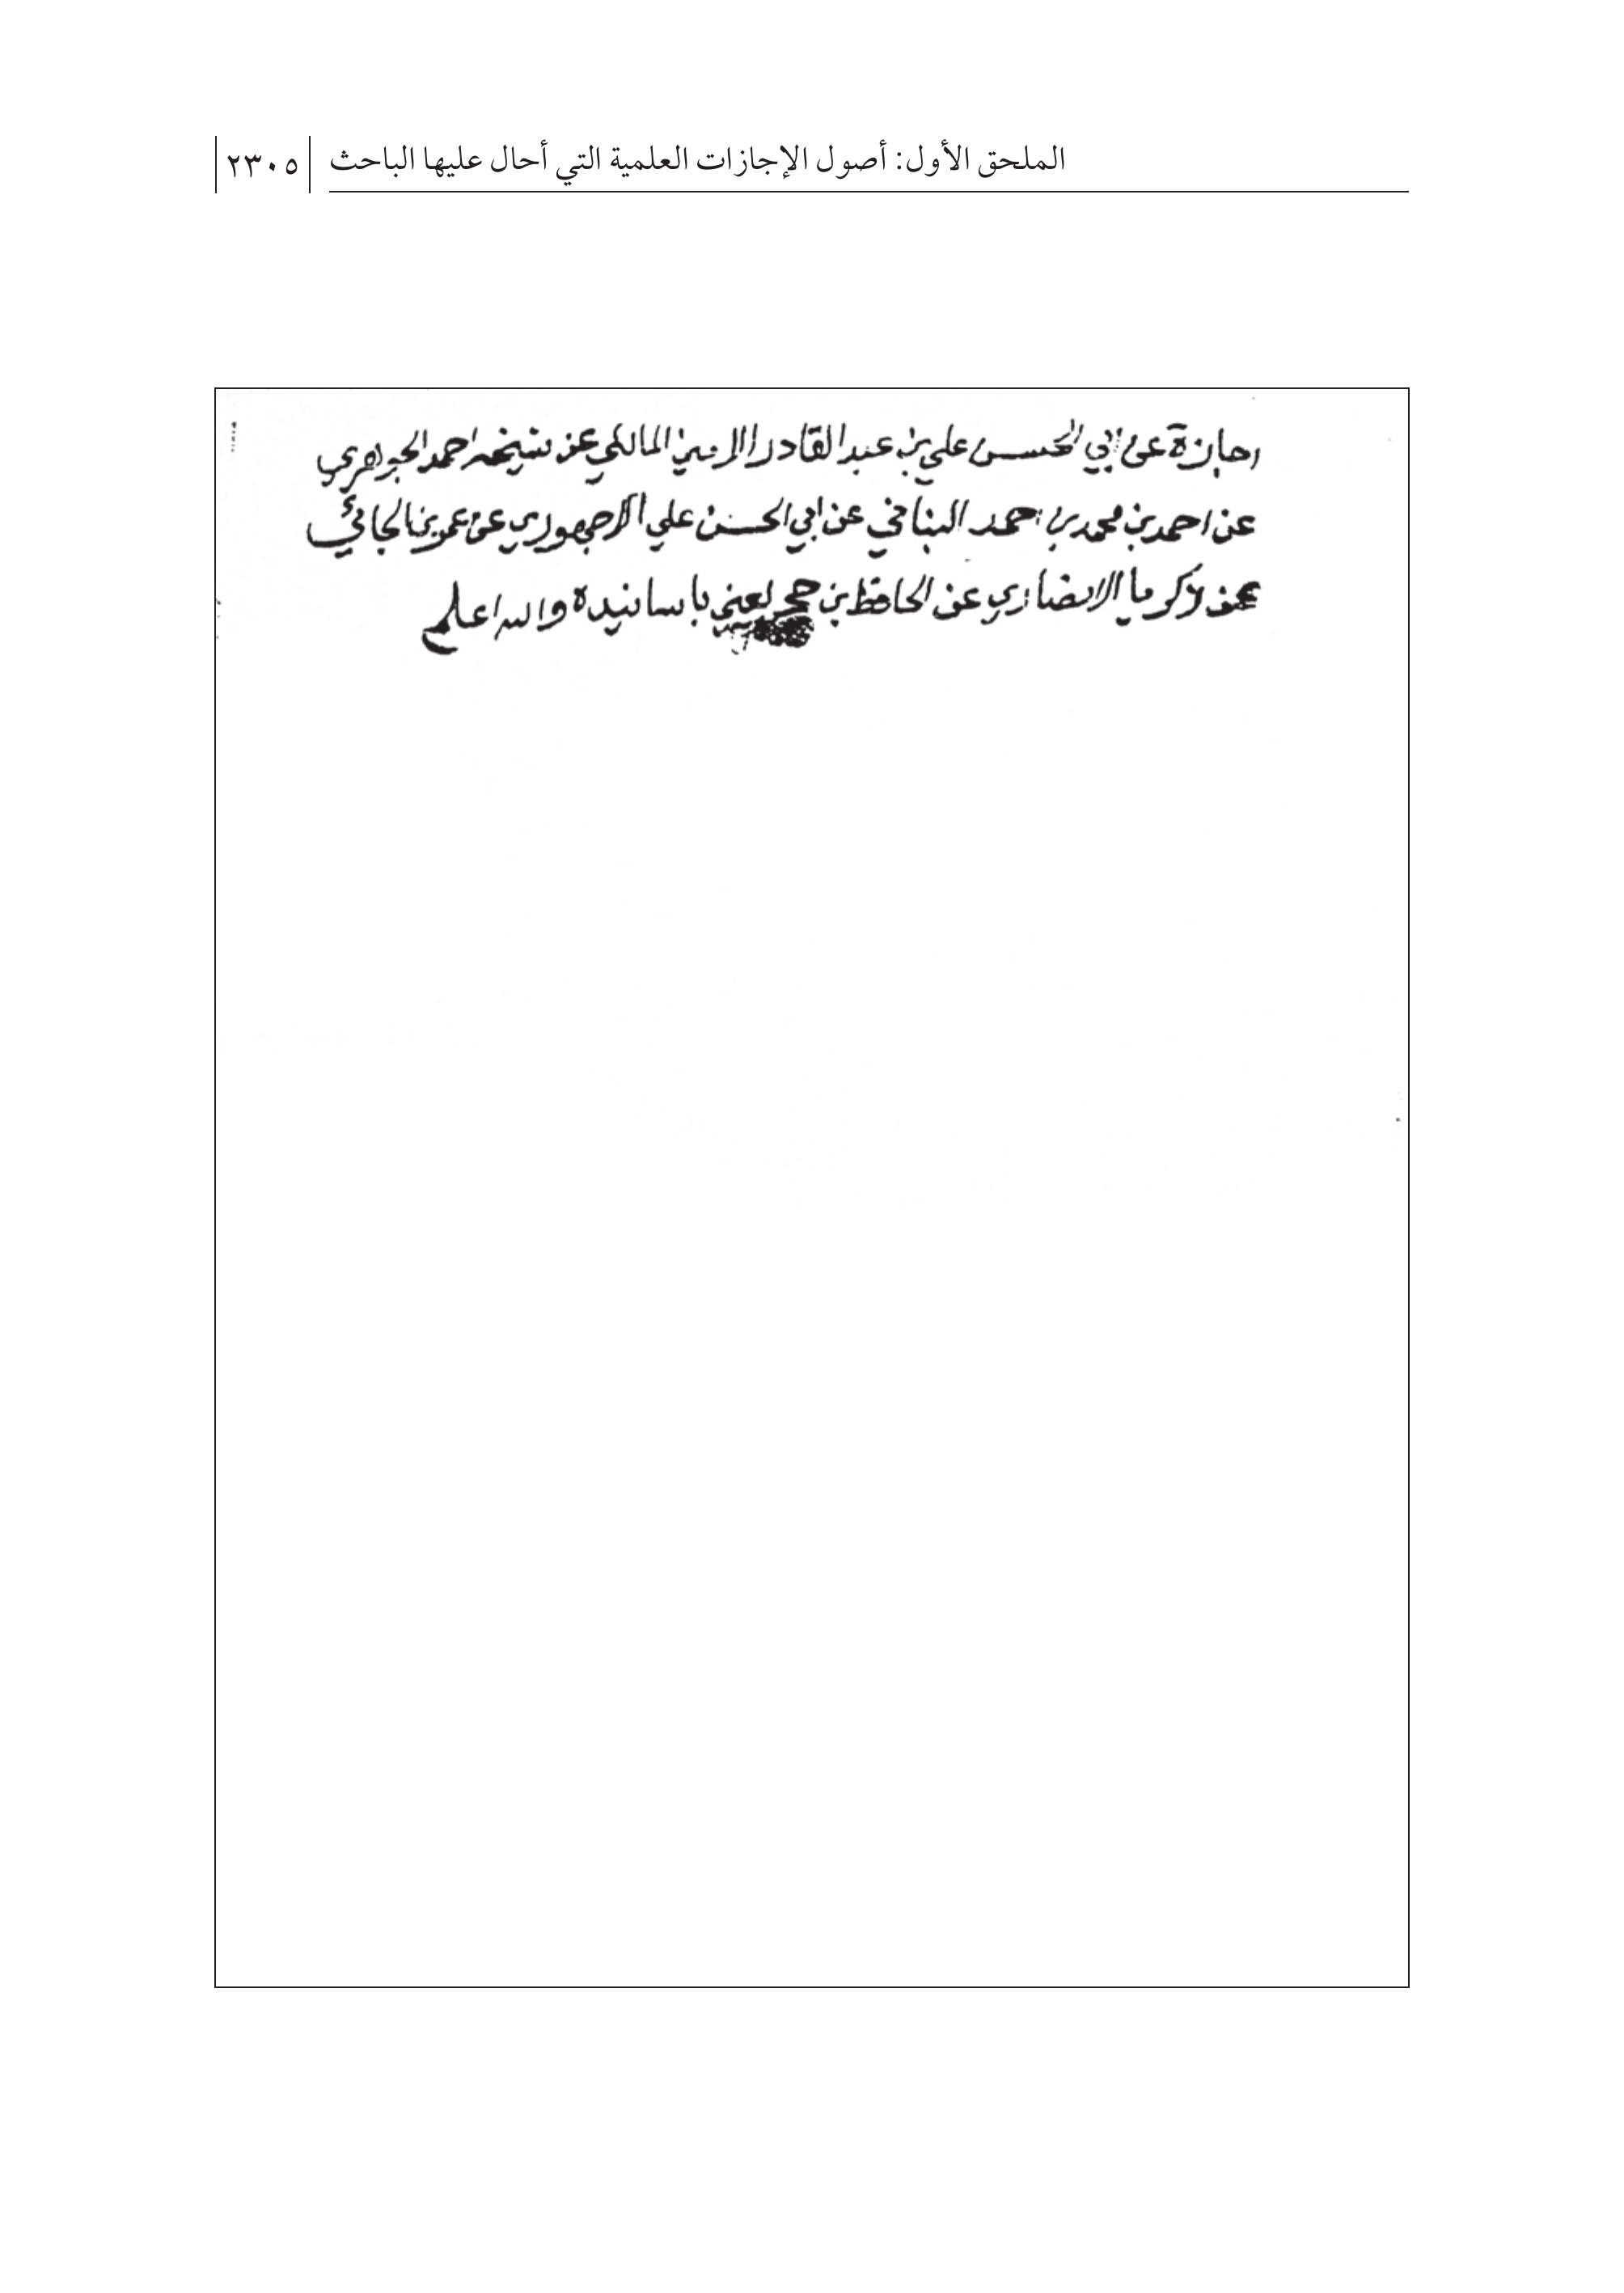 الملحق الأول: أصول الإجازات العلمية التي أحال عليها الباحث ٢٣٠٥
اجازة عن ابي الحسن علي بن عبد القادر الامين المالكي عن شيخه احمد الجوهري
عن احمد بن محمد بن احمد البناني عن ابي الحسن علي الاجهوري عن عمر بن الجائي
عن زكريا الانصاري عن الحافظ بن حجر باسانيده والله اعلم